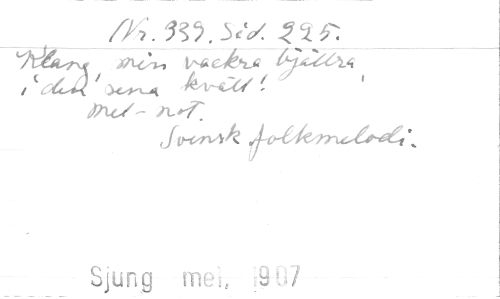 Nr. 339. Sid. 225.
Klang, min vackra bjällra,
i den sena kväll!
mel-not.
Svensk folkmelodi.
Sjung mel, 1907